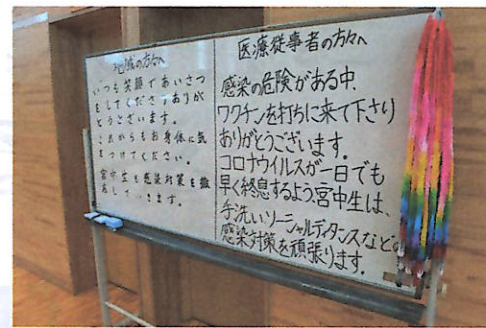 地域の方々へ
いつも笑顔であいさつ
をしてくださりありが
とうございます。
これからもお身体に気
をつけてください。
宮中生も感染対策を徹
底していきます。
医療従事者の方々へ
感染の危険がある中、
ワクチンを打ちに来て下さり
ありがとうございます。
コロナウイルスが一日でも
早く終息するよう、宮中生は、
手洗い、ソーシャルディスタンスなどの
感染対策を頑張ります。